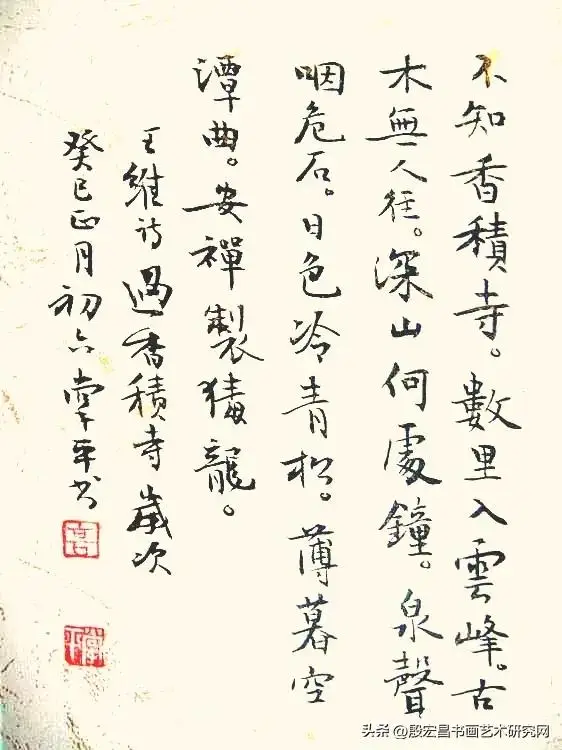 不知香積寺。數里入雲峰。古
木無人径。深山何處鐘。泉聲
咽危石。日色冷青松。薄暮空
潭曲。安禪製龍。
王維诗過香積寺歲次
癸巳正月初六掌平书
头条 @殷宏昌书画艺术研究网